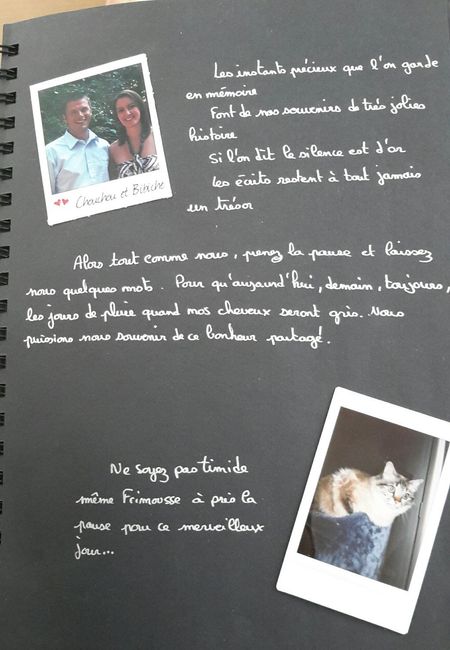 Les instants précieux que l'on garde
en mémoire
Font de nos souvenirs de très jolies
histoire
Si l'on dit le silence est d'or
Les écrits restent à tout jamais
un trésor
Chouchou et Bibiche
Alors tout comme nous, prenez la pause et laissez
nous quelques mots. Pour qu'aujourd'hui, demain, toujours,
les jours de pluie quand nos cheveux seront gris. Nous
puissions nous souvenir de ce bonheur partagé.
Ne soyez pas timide
même Frimousse à pris la
pause pour ce merveilleux
jour...